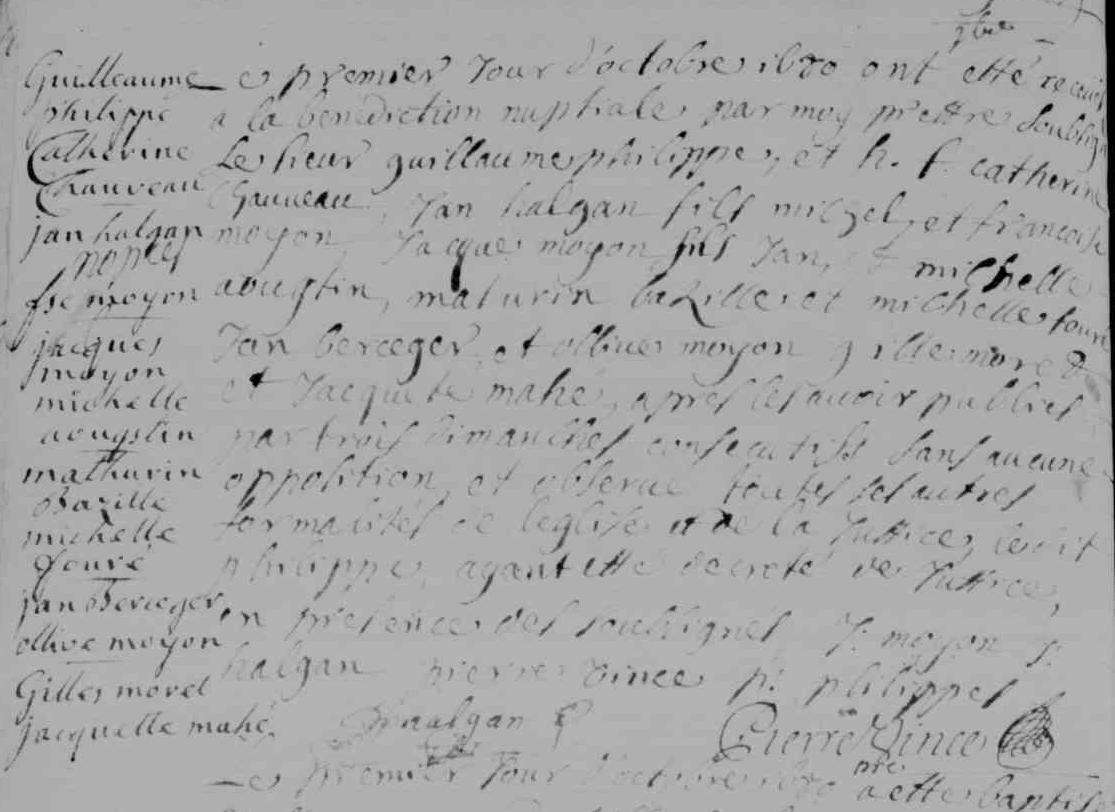 Guilleaume
philippe
Catherine
Chauveau
jan halgan
nopces
fse moyon
jacques
moyon
michelle
aougstin
mathurin
Bazille
michelle
fouré
jan Berceger
ollive moyon
Gilles morel
jacquelle mahé.
e premier Jour d'octobre 1670 ont etté receus
a la benediction nuptiale par moy prettre soubsig
Le sieur guillaume philippe, et h. f. catherine
Chauveau, Jan halgan fils michel, et francoise
moyon Jacque moyon fils Jan, et michelle
aougstin, maturin bazille et michelle fouré
Jan berceger et ollive moyon gille morel
et Jacquette mahé, apres les avoir publiés
par trois dimanches consecutifs sans aucune
opposition, et observé toutes les autres
formalités de l'eglise et de la Justice, ledit
philippe, ayant etté decreté de Justice,
en presence des soubsignés J. moyon J.
halgan pierre vince p. philippes
halgan
Pierre Vince
e premier Jour d'octobre 1670 a etté baptisé